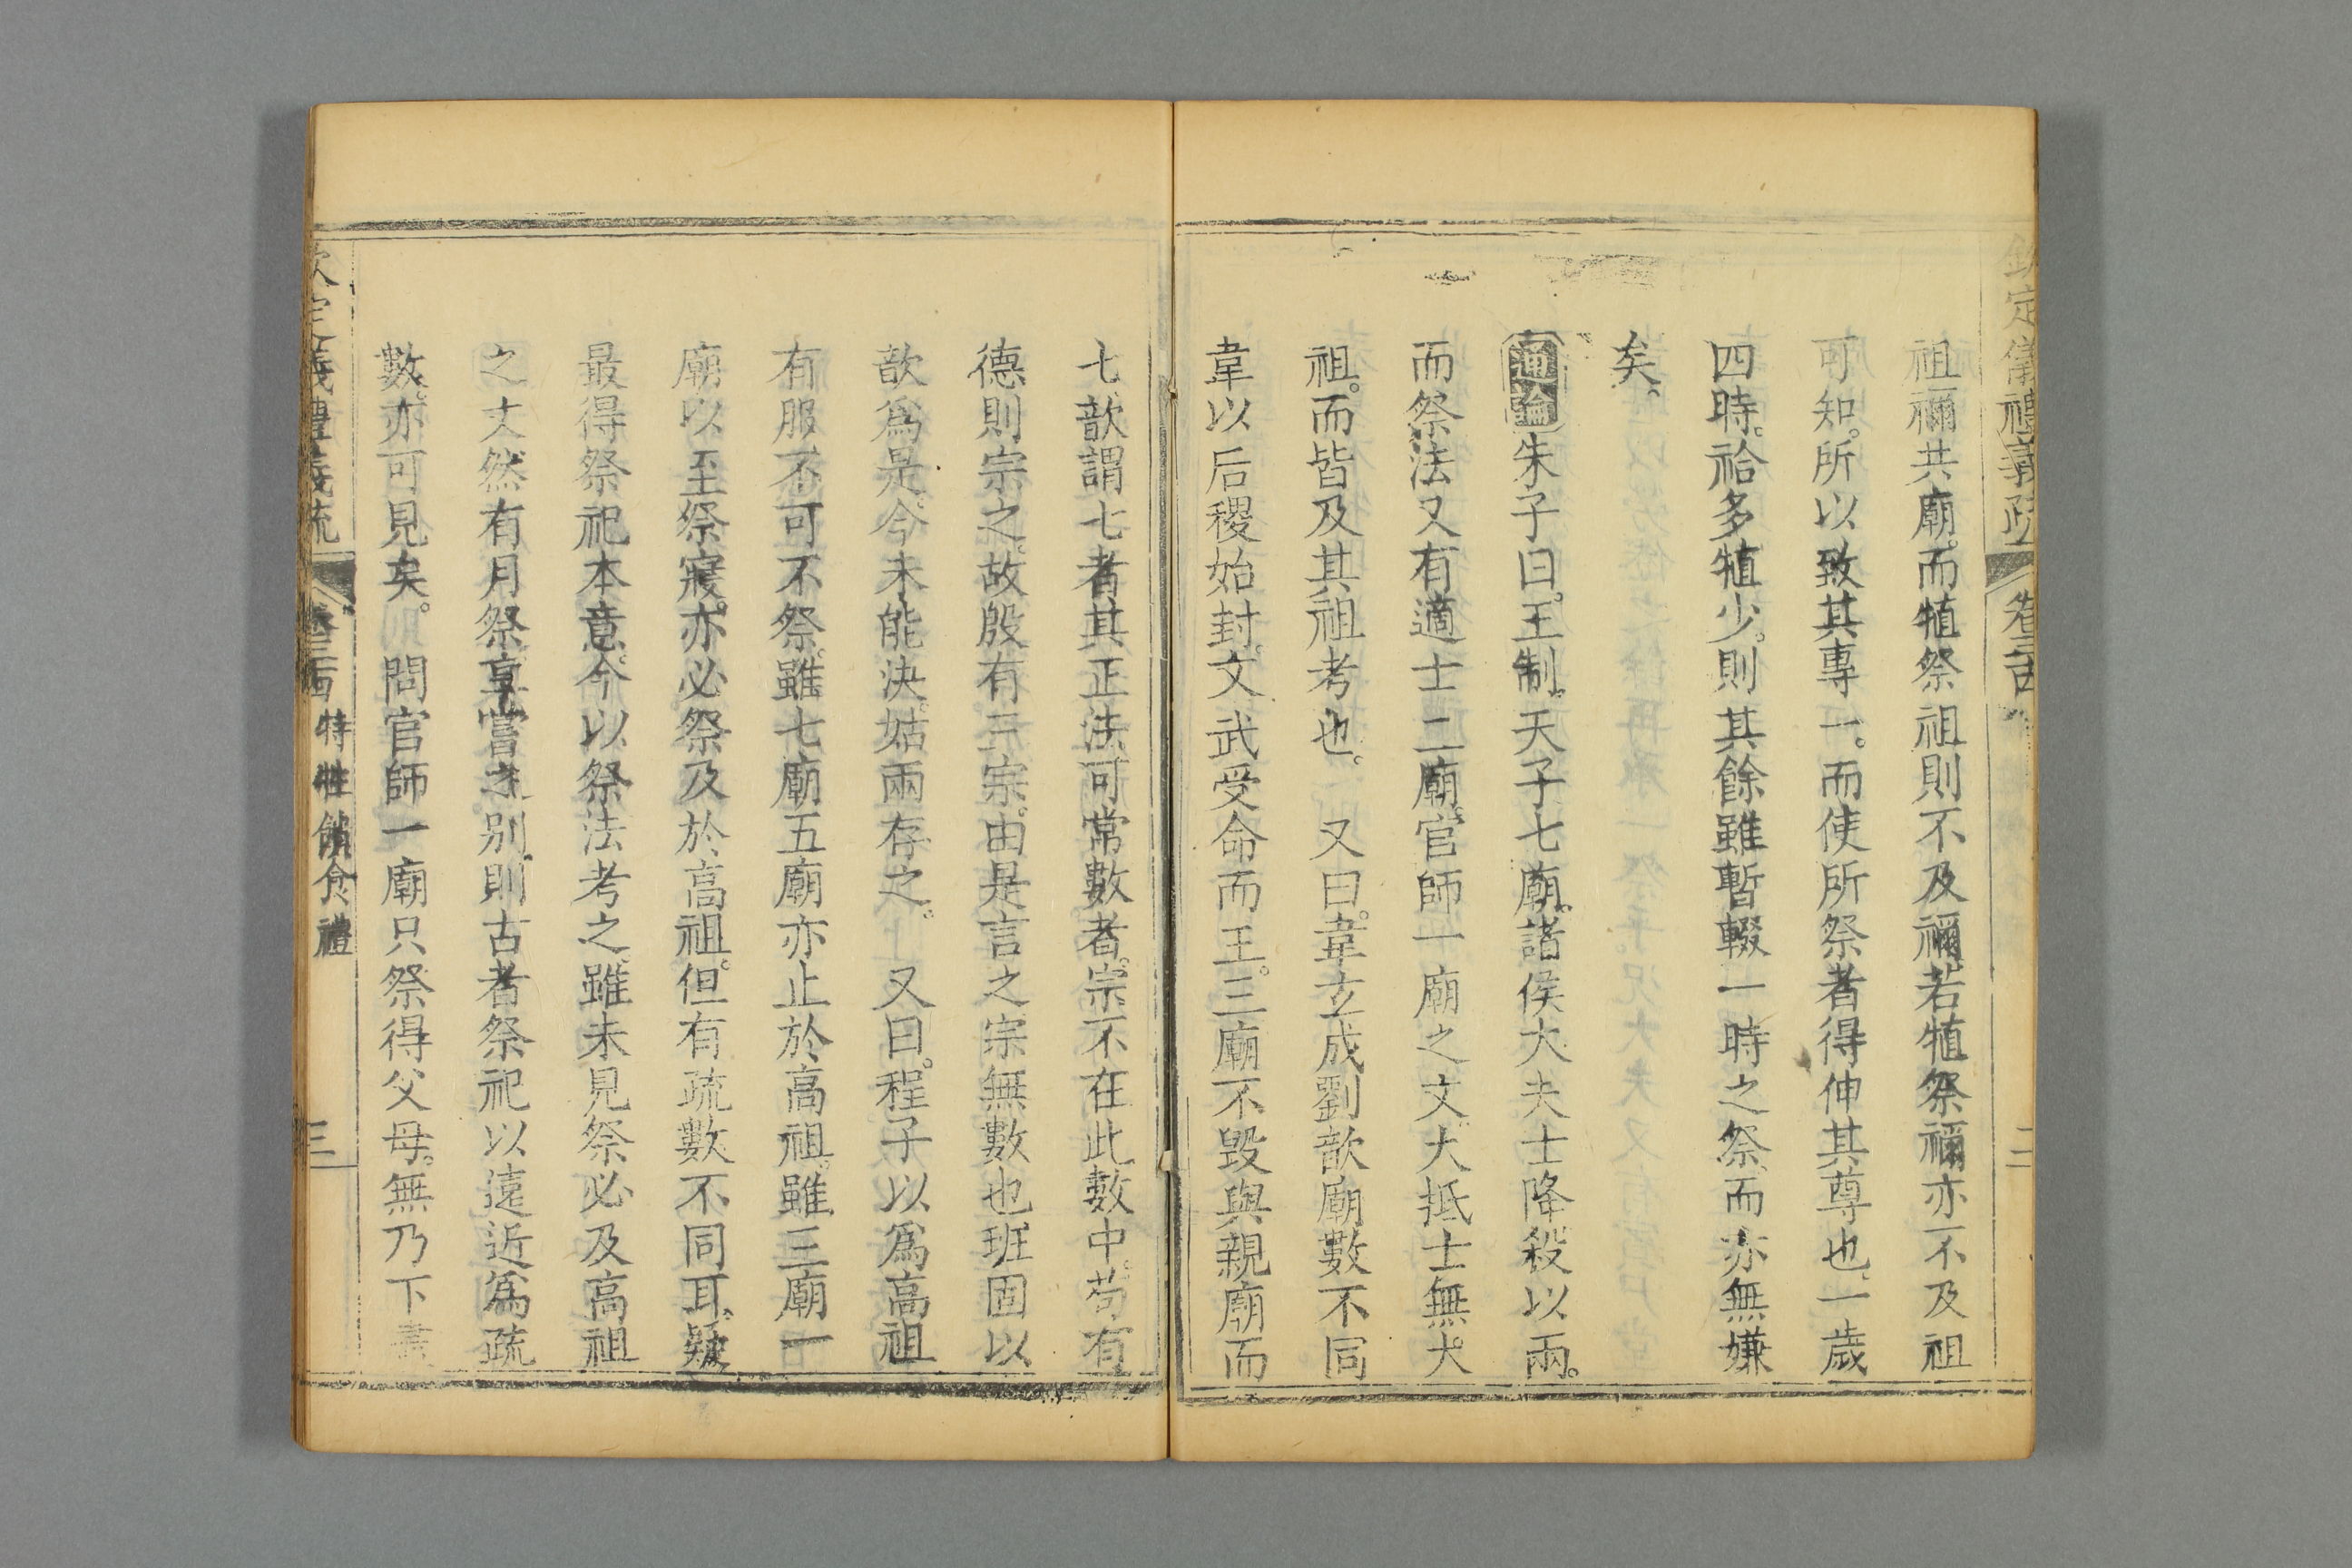 欽定儀禮義疏 卷三十四 二
祖禰共廟。而犆祭祖則不及禰若犆祭禰亦不及祖
可知。所以致其專一。而使所祭者得伸其尊也。一歲
四時。祫多犆少。則其餘雖暫輟一時之祭。而亦無嫌
矣。
通論朱子曰。王制。天子七廟。諸侯大夫士降殺以兩。
而祭法又有適士二廟。官師一廟之文。大抵士無太
祖。而皆及其祖考也。 又曰。韋玄成劉歆廟數不同
韋以后稷始封。文武受命而王。三廟不毀與親廟而
七。歆謂七者其正法可常數者。宗不在此數中。苟有
德則宗之。故殷有三宗。由是言之宗無數也班固以
歆爲是。今未能決。姑兩存之。 又曰。程子以爲高祖
有服不可不祭。雖七廟五廟亦止於高祖。雖三廟一
廟以至祭寢。亦必祭及於高祖。但有疏數不同耳。疑
最得祭祀本意。今以祭法考之。雖未見祭必及高祖
之文然有月祭享嘗之別。則古者祭祀以遠近爲疏
數。亦可見矣。 問官師一廟只祭得父母。無乃下
欽定儀禮義疏 特牲饋食禮 三